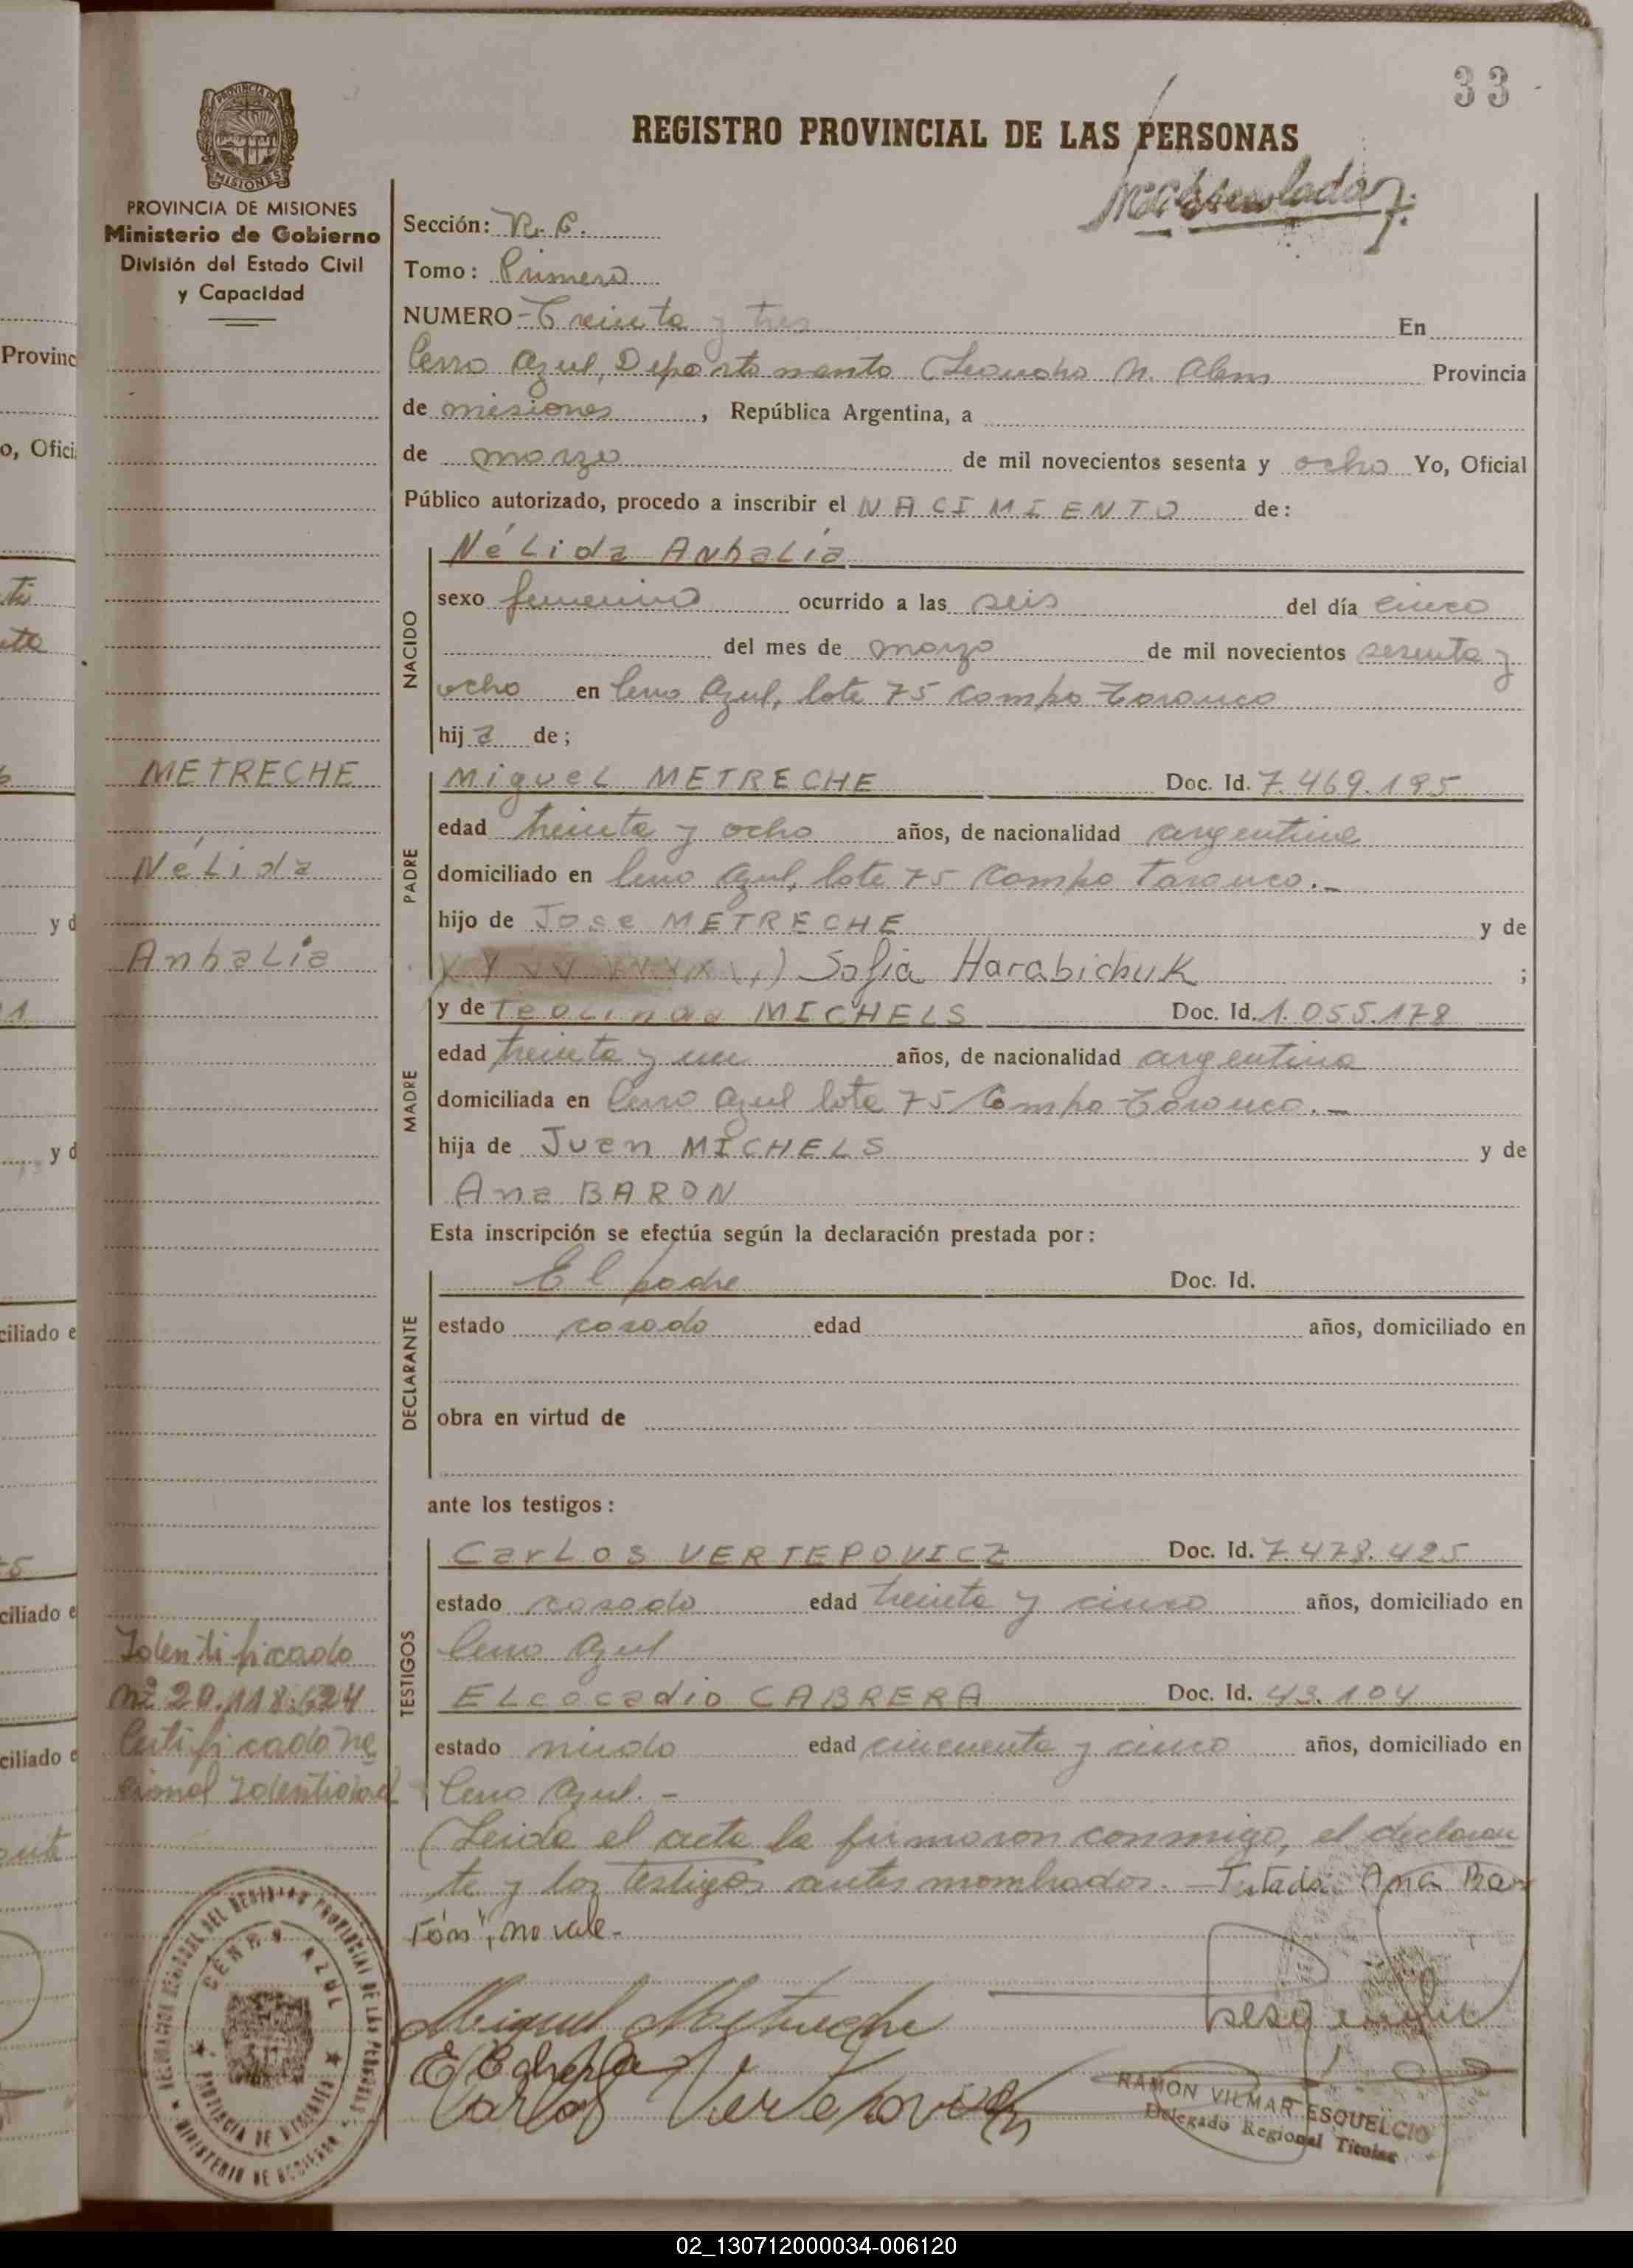 33
REGISTRO PROVINCIAL DE LAS PERSONAS
MISIONES
PROVINCIA DE MISIONES
Ministerio de Gobierno
División del Estado Civil
y Capacidad
Sección: R. C.
Tomo: Primero
NUMERO - Treinta y tres En
Cerro Azul, Departamento Leandro N. Alem Provincia
de misiones, República Argentina, a
de marzo de mil novecientos sesenta y ocho Yo, Oficial
Público autorizado, procedo a inscribir el NACIMIENTO de:
NACIDO
Nélida Anhalia
sexo femenino ocurrido a las seis del día cinco
del mes de marzo de mil novecientos sesenta y
ocho en Cerro Azul, lote 75 Campo Taranco
hija de;
METRECHE
Nélida
Anhalia
PADRE
Miguel METRECHE Doc. Id. 7.469.195
edad treinta y ocho años, de nacionalidad argentina
domiciliado en Cerro Azul, lote 75 Campo Taranco.-
hijo de Jose METRECHE y de
Sofia Harabichuk ;
MADRE
y de MICHELS Doc. Id. 1.055.178
edad treinta y un años, de nacionalidad argentina
domiciliada en Cerro Azul lote 75 Campo Taranco.-
hija de Juan MICHELS y de
Ana BARON
Esta inscripción se efectúa según la declaración prestada por:
DECLARANTE
El padre Doc. Id.
estado casado edad años, domiciliado en
obra en virtud de
ante los testigos:
TESTIGOS
Carlos VERTEPOVICZ Doc. Id. 7.478.425
estado casado edad treinta y cinco años, domiciliado en
Cerro Azul
ELeocadio CABRERA Doc. Id. 43.104
estado viudo edad cincuenta y cinco años, domiciliado en
Cerro Azul.-
Identificado
Nº 20.118.624
Certificado Na
cional Identidad
Leida el acta la firmaron conmigo, el declaran
te y los testigos antes nombrados. - Ana Ba
rón", no vale.-
Miguel Metreche
Carlos Vertepovicz
RAMON VILMAR ESQUELCIO
Delegado Regional Titular
CERRO AZUL
PROVINCIA DE MISIONES
MINISTERIO DE GOBIERNO
02_130712000034-006120